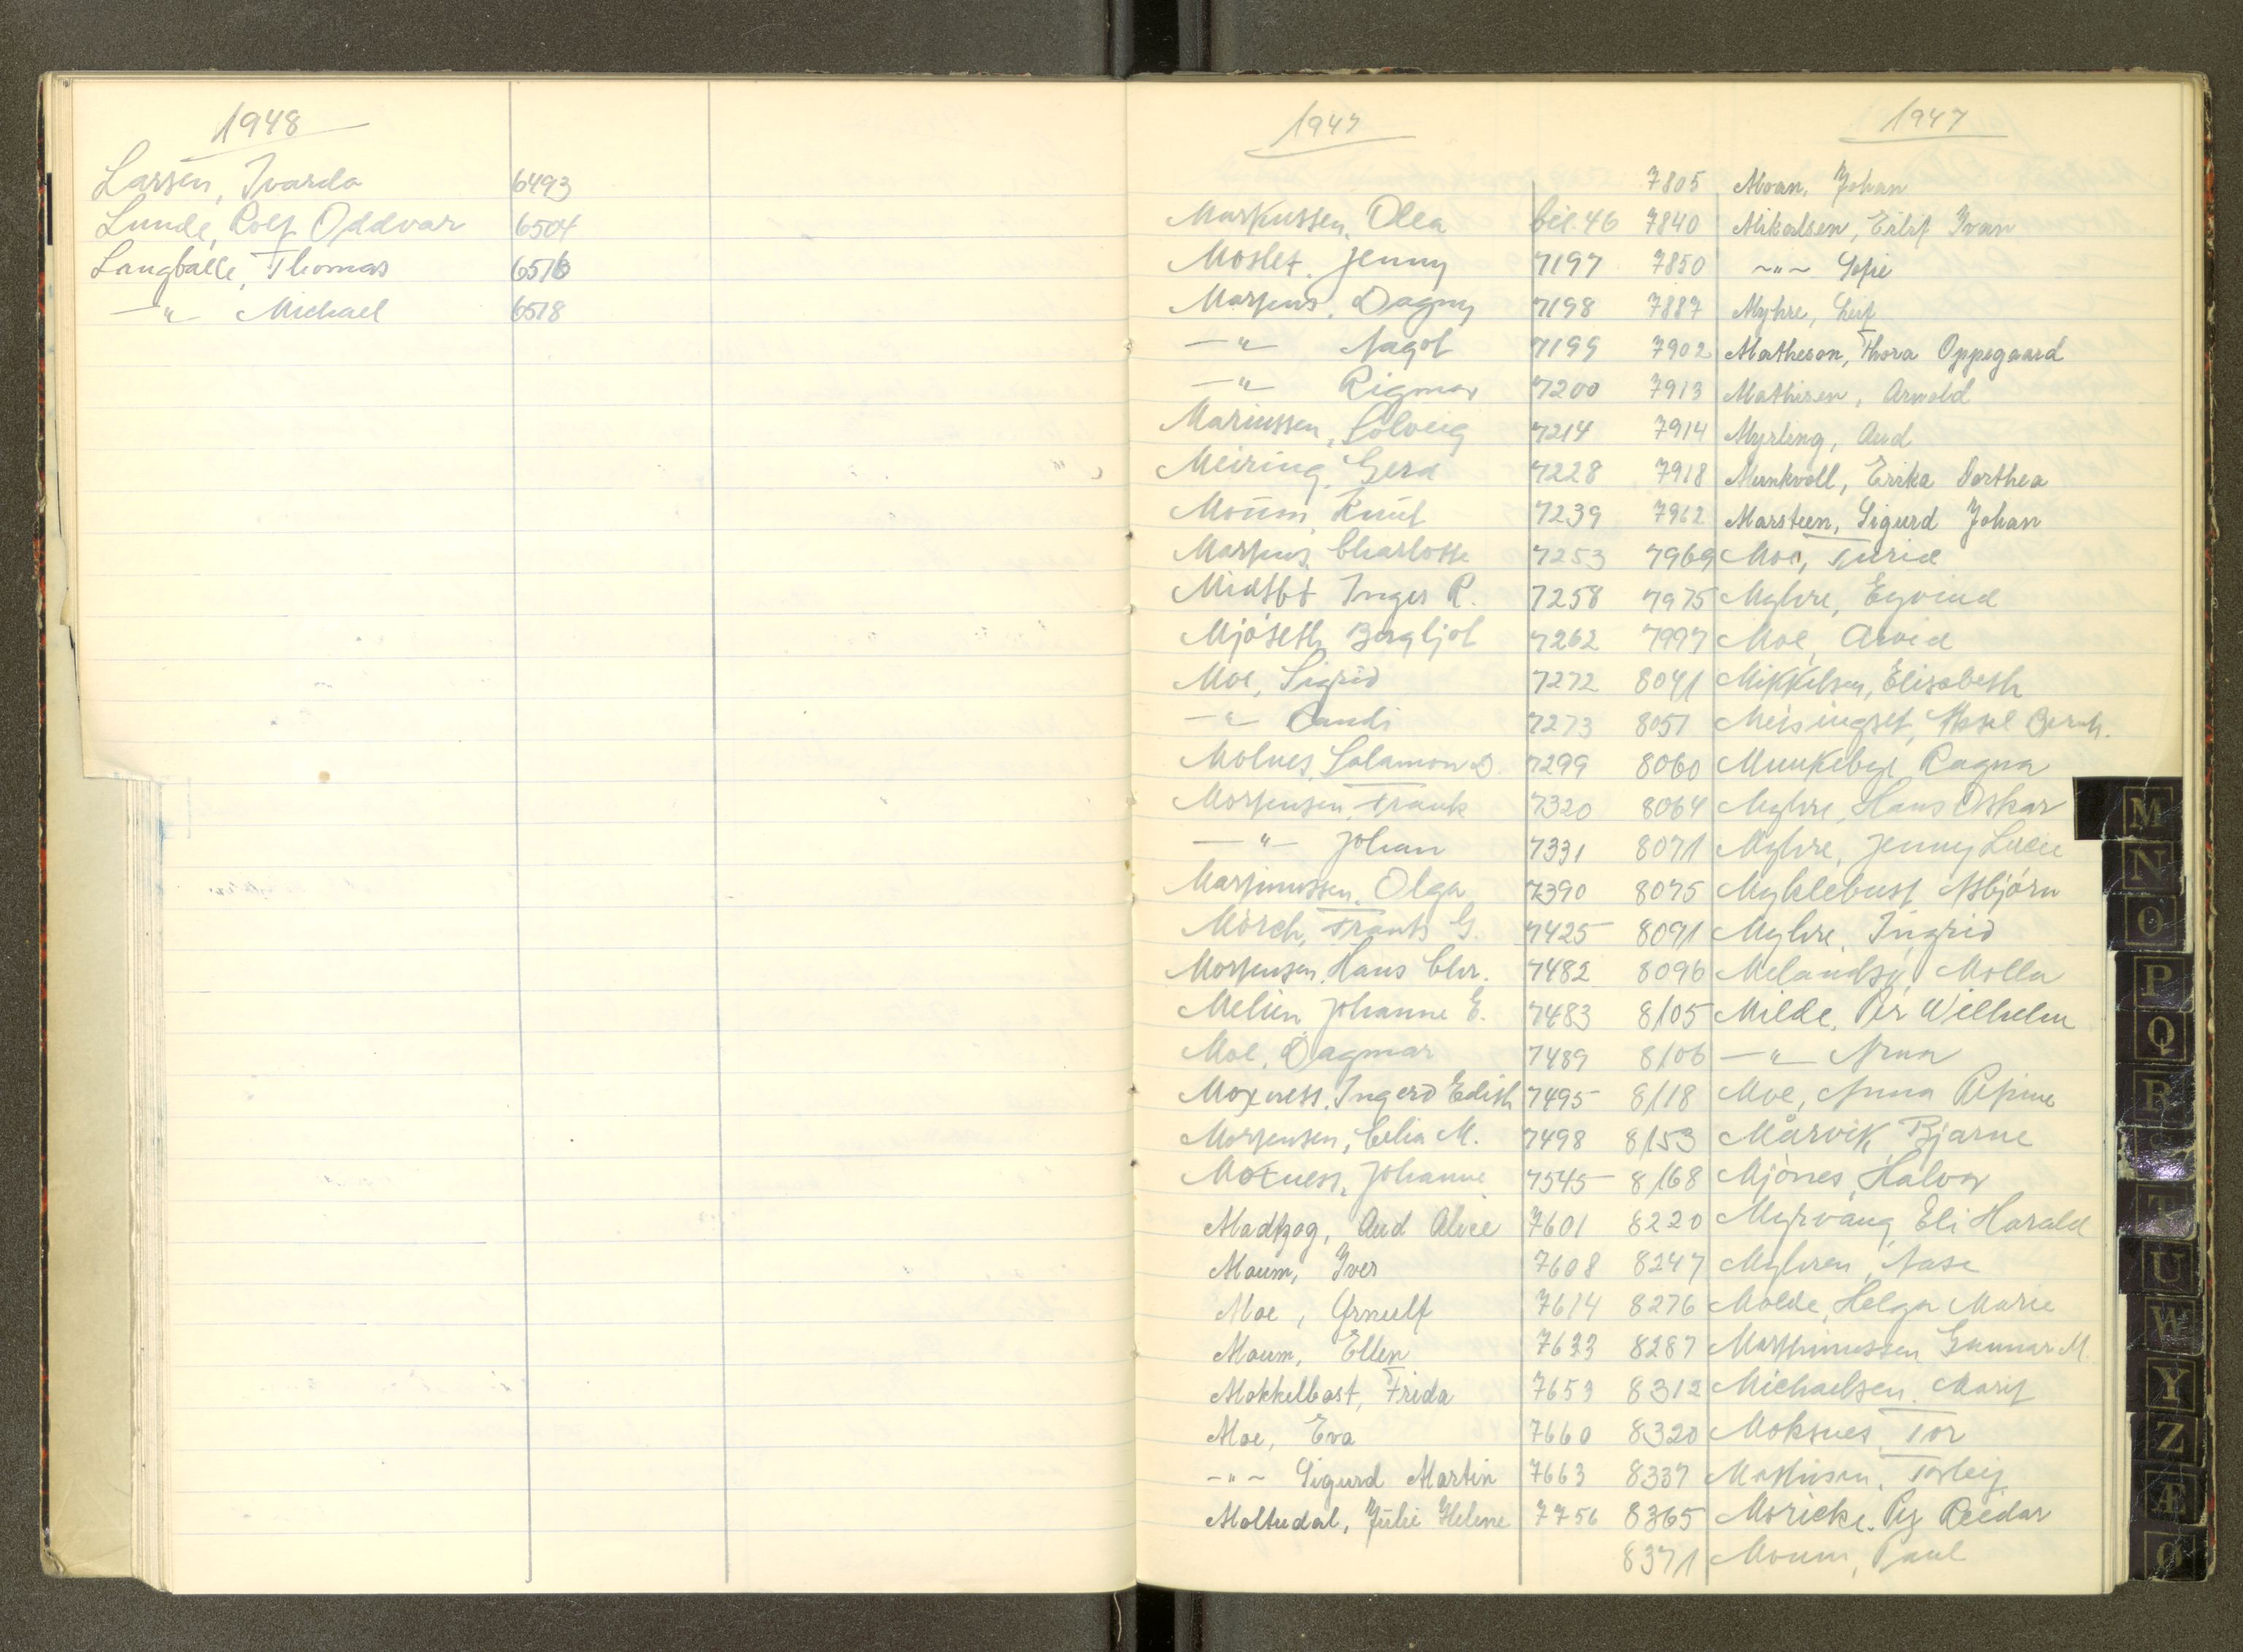 1948
Larsen, Ivarda 6493
Lunde, Rolf Oddvar 6504
Langballe, Thomas 6516
—"— Michael 6518
1947
Markussen, Olea bil. 46
Moslet, Jenny 7197
Dagny 7198
—"— Aagot 7199
—"— Rigmor 7200
Mariussen, Solveig 7214
Meiring, Gerd 7228
Moum, Knut 7239
Charlotte 7253
Inger R. 7258
Mjøseth, Bergljot 7262
Moe, Sigrid 7272
—"— Randi 7273
Molnes, Salamon D. 7299
Mortensen, Frank 7320
—"— Johan 7331
Martinussen, Olga 7390
Mörch, Frants G. 7425
Mortensen, Hans Chr. 7482
Melien, Johanne E. 7483
Moe, Dagmar 7489
Moxness, Ingerd Edith 7495
Mortensen, Celia M. 7498
Moxness, Johanne 7545
Aud Alice 7601
Moum, Iver 7608
Moe, Arnulf 7614
Moum, Ellen 7633
Mokkelbost, Frida 7653
Moe, Eva 7660
-"- Sigurd Martin 7663
Moltudal, Julie Helene 7756
1947
7805 Moan, Johan
7840 Mikalsen, Eilif Ivan
7850 ~"~ Sofie
7887 Myhre, Leif
7902 Matheson, Thora Oppegaard
7913 Mathisen, Arnold
7914 Myrling, Aud
7918 Munkvoll, Erika Dorthea
7962 Marsteen, Sigurd Johan
7969 Moe, Turid
7975 Myhre, Eyvind
7997 Moe, Arvid
8041 Mikkelsen, Elisabeth
8051 Meisingset, Aksel Bernh.
8060 Munkeby, Ragna
8064 Myhre, Hans Oskar
8071 Myhre, Jenny Lucie
8075 Myklebust, Asbjörn
8091 Myhre, Ingrid
8096 Melandsø, Molla
8105 Milde, Per Wilhelm
8106 —"— Anna
8118 Moe, Anna Petrine
8153 Mårvik, Bjarne
8168 Mjönes, Halvor
8220 Myrvang, Eli Harald
8247 Myhren, Aase
8276 Molde, Helga Marie
8287 Marthinussen, Gunnar M.
8312 Michaelsen, Marit
8320 Moksnes, Tor
8337 Mathisen, Torleif
8365 Möricke, Per Reidar
8371 Moum, Paul
M
N
O
P
Q
R
S
T
U
W
Y
Z
Æ
Ø